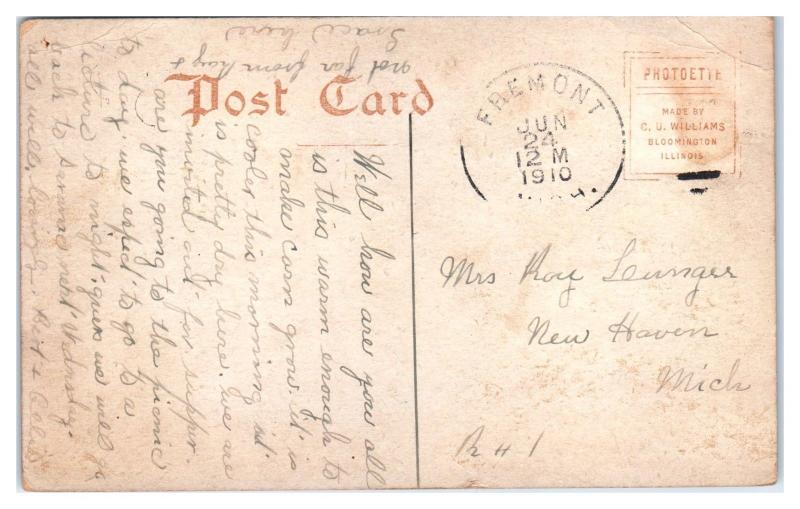 Post Card
PHOTOETTE
MADE BY
C. U. WILLIAMS
BLOOMINGTON
ILLINOIS
FREMONT
JUN
24
12 M
1910
MICH.
Well how are you all
is this warm enough to
make corn grow. it is
cooler this morning it
is pretty dry here. we are
invited out for supper
are you going to the picnic
to day we expect to go to a
picture to night. guess we will go
back to next Wednesday.
all well, lovingly. Bert &
not far from Ray &
Grace here
Mrs Roy
New Haven
Mich
R # 1